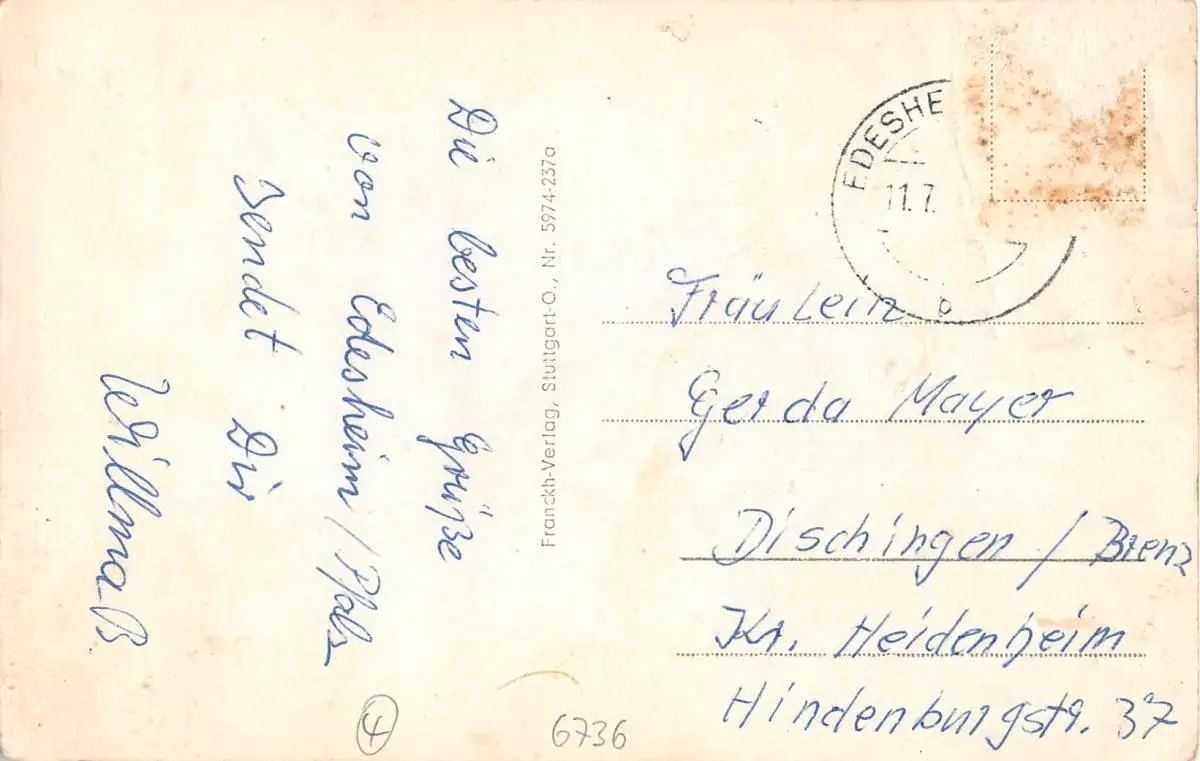 Die besten Grüße
von Edesheim / Pfalz
sendet Dir
Willma B.
Franckh-Verlag, Stuttgart-O., Nr. 5974-237a
EDESHE
11.7.
b
Fräulein
Gerda Mayer
Dischingen / Brenz
Kr. Heidenheim
Hindenburgstr. 37
6736